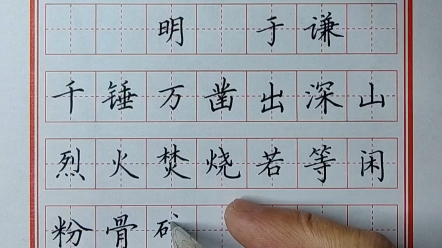 明 于谦
千锤万凿出深山
烈火焚烧若等闲
粉骨